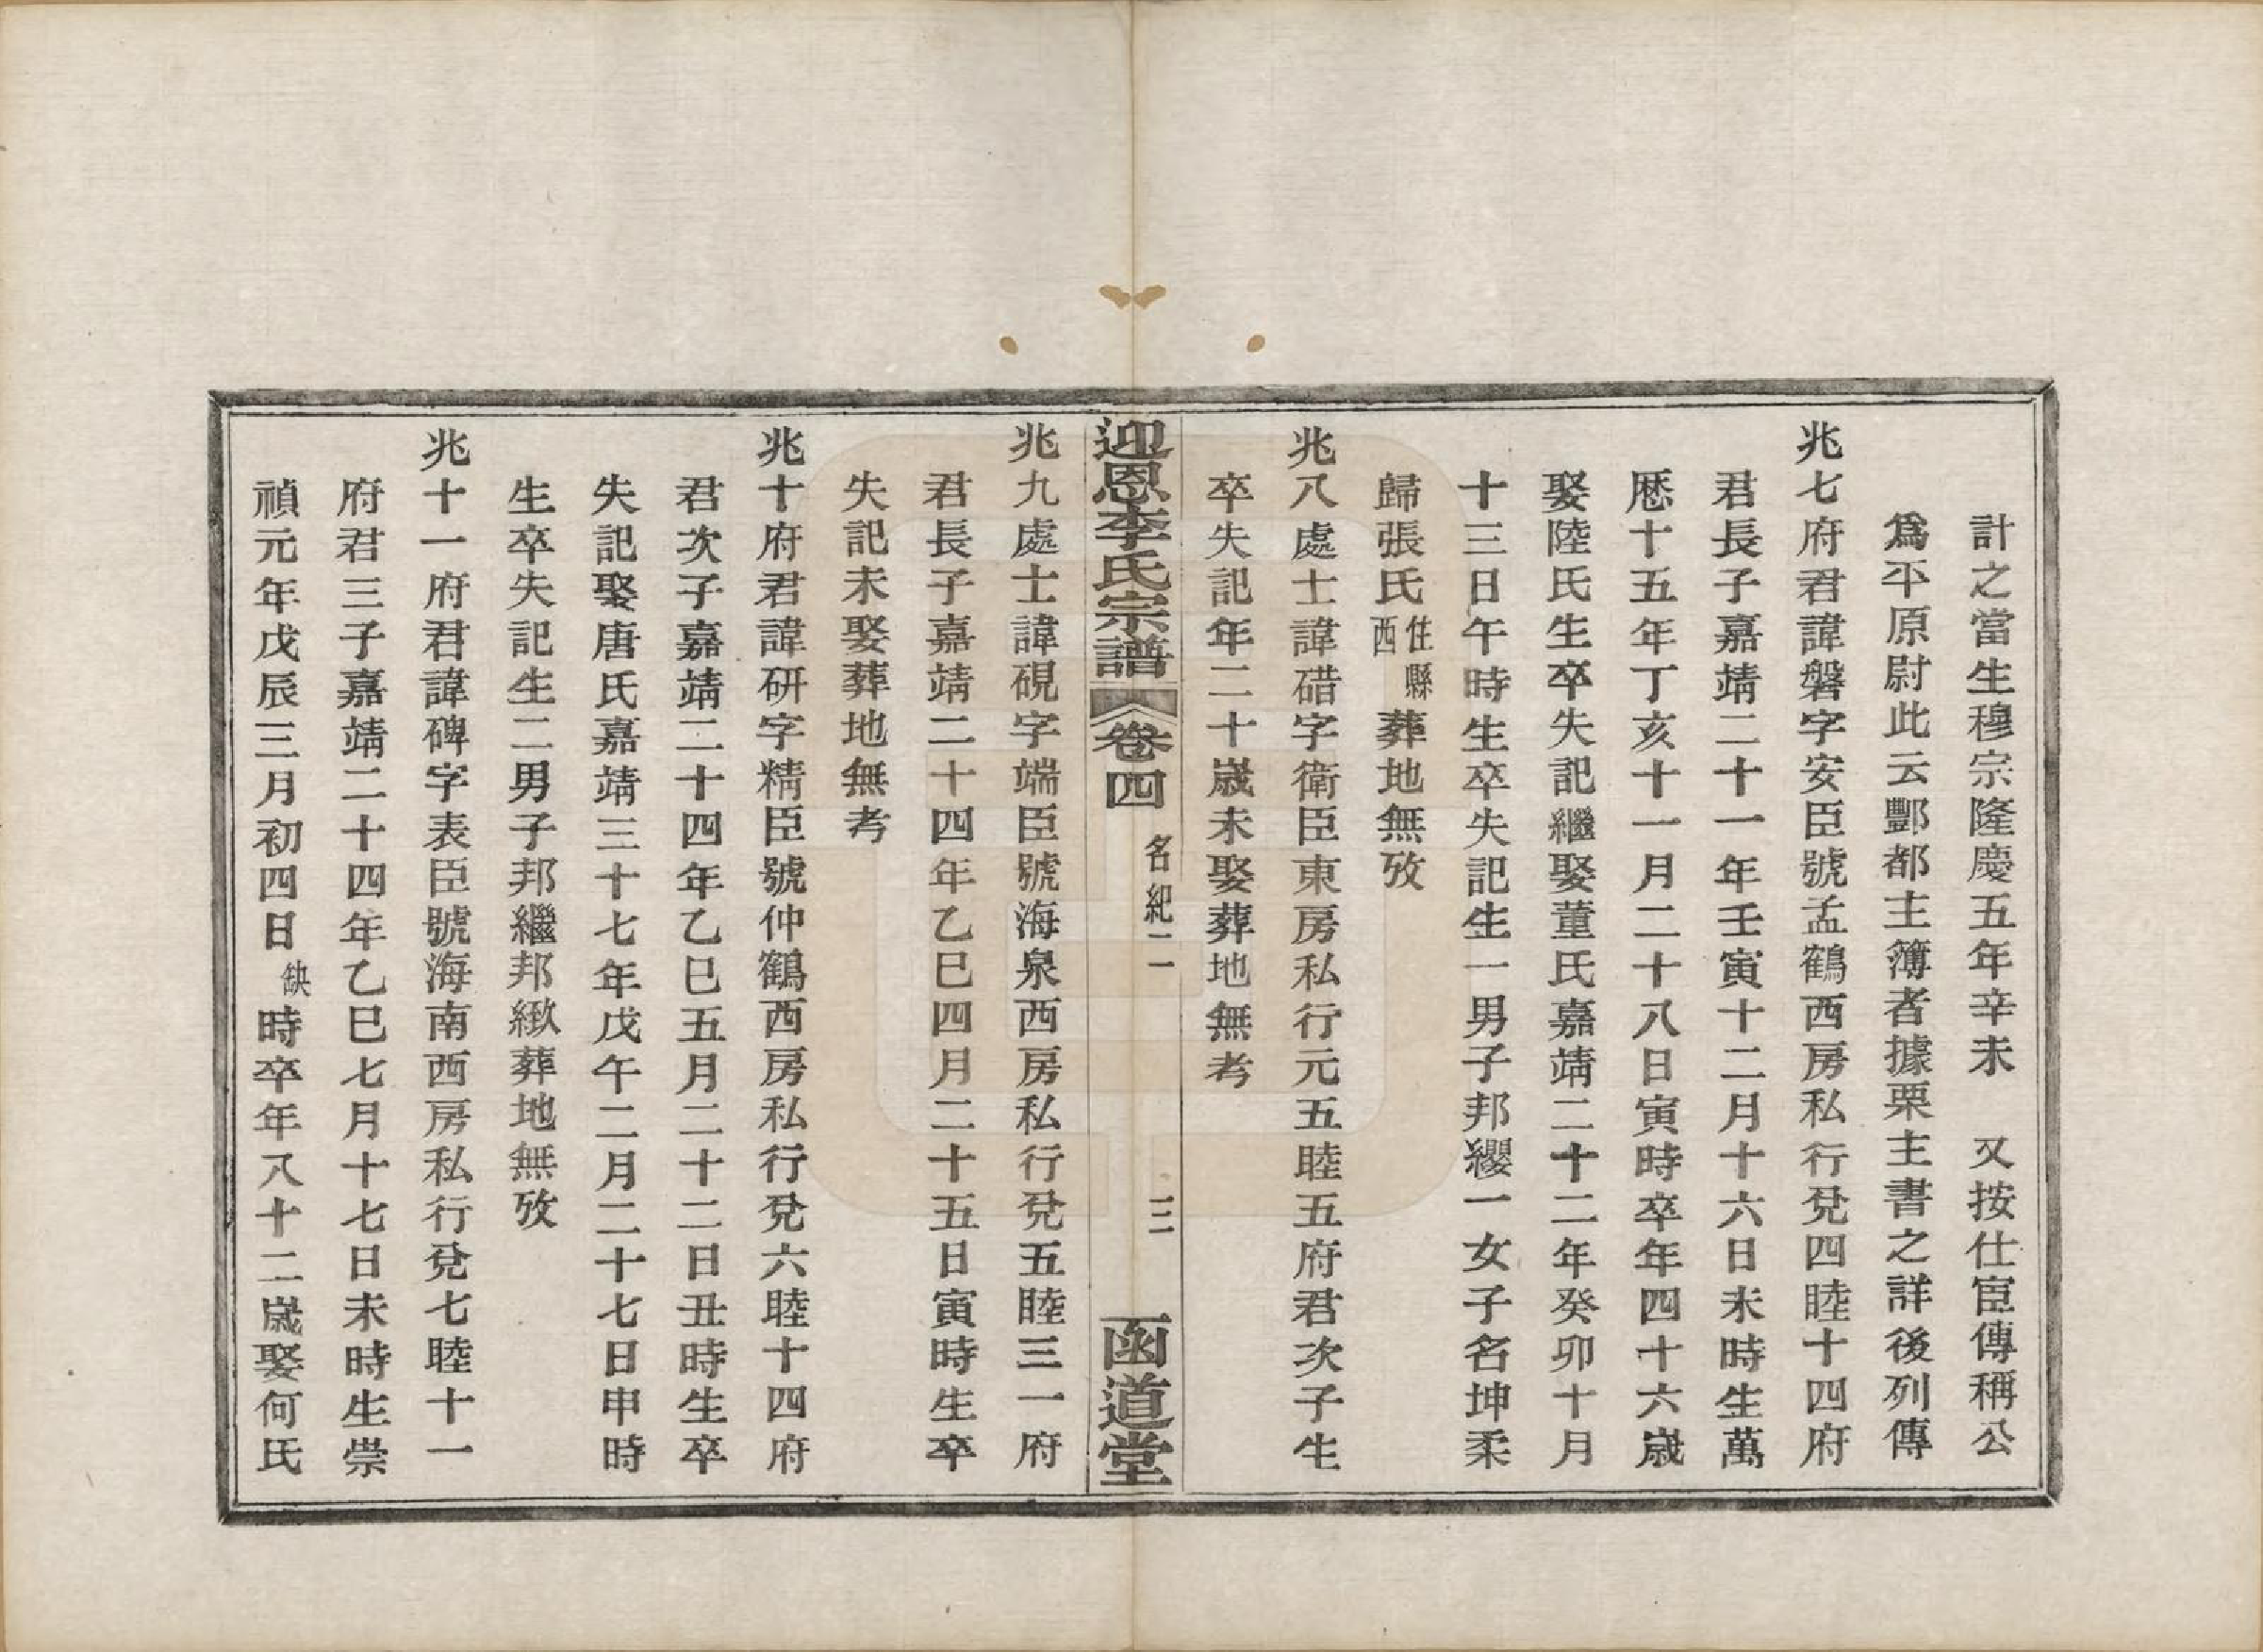 計之當生穆宗隆慶五年辛未　又按仕宦傳稱公
爲平原尉此云酆都主簿者據栗主書之詳後列傳
兆七府君諱磐字安臣號孟鶴西房私行兌四睦十四府
君長子嘉靖二十一年壬寅十二月十六日未時生萬
厯十五年丁亥十一月二十八日寅時卒年四十六歲
娶陸氏生卒失記繼娶董氏嘉靖二十二年癸卯十月
十三日午時生卒失記生一男子邦纓一女子名坤柔
歸張氏住縣西葬地無攷
兆八處士諱碏字衛臣東房私行元五睦五府君次子生
卒失記年二十歲未娶葬地無考
迎恩李氏宗譜　卷四　名紀二　三　函道堂
兆九處士諱硯字端臣號海泉西房私行兌五睦三一府
君長子嘉靖二十四年乙巳四月二十五日寅時生卒
失記未娶葬地無考
兆十府君諱研字精臣號仲鶴西房私行兌六睦十四府
君次子嘉靖二十四年乙巳五月二十二日丑時生卒
失記娶唐氏嘉靖三十七年戊午二月二十七日申時
生卒失記生二男子邦繼邦緻葬地無攷
兆十一府君諱碑字表臣號海南西房私行兌七睦十一
府君三子嘉靖二十四年乙巳七月十七日未時生崇
禎元年戊辰三月初四日缺時卒年八十二歲娶何氏